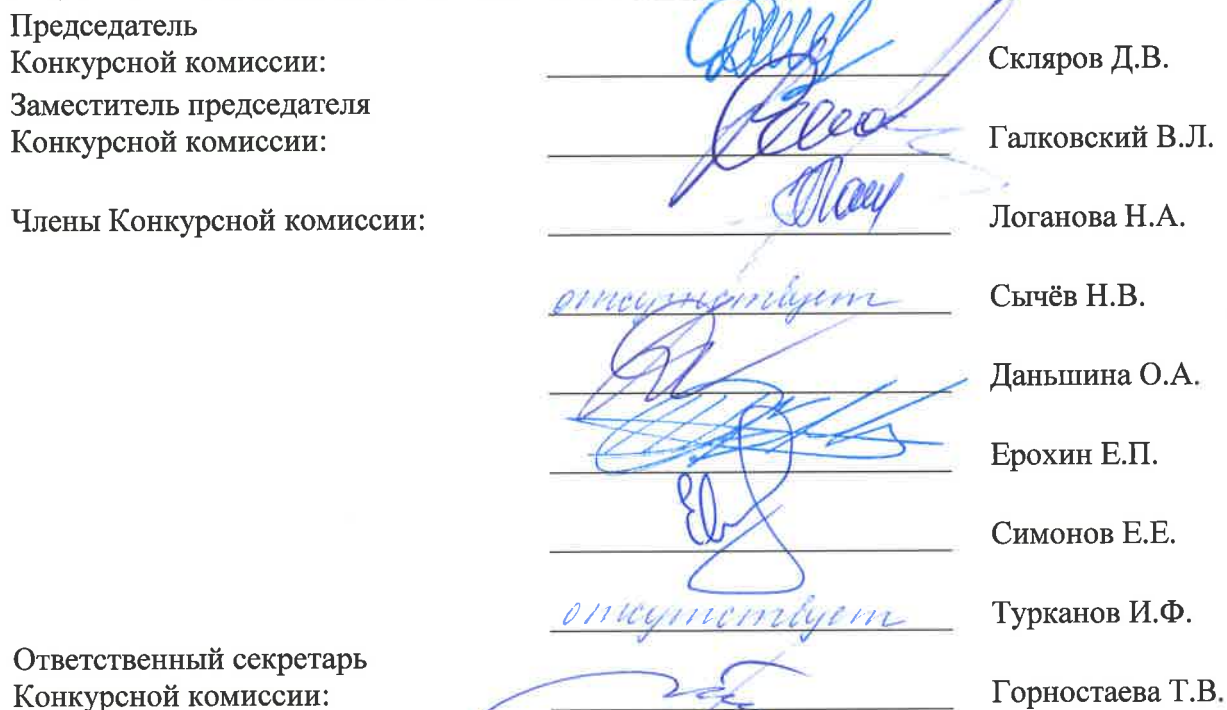 Председатель
Конкурсной комиссии: Скляров Д.В.
Заместитель председателя
Конкурсной комиссии: Галковский В.Л.
Члены Конкурсной комиссии: Логанова Н.А.
отсутствует Сычёв Н.В.
Даньшина О.А.
Ерохин Е.П.
Симонов Е.Е.
отсутствует Турканов И.Ф.
Ответственный секретарь
Конкурсной комиссии: Горностаева Т.В.